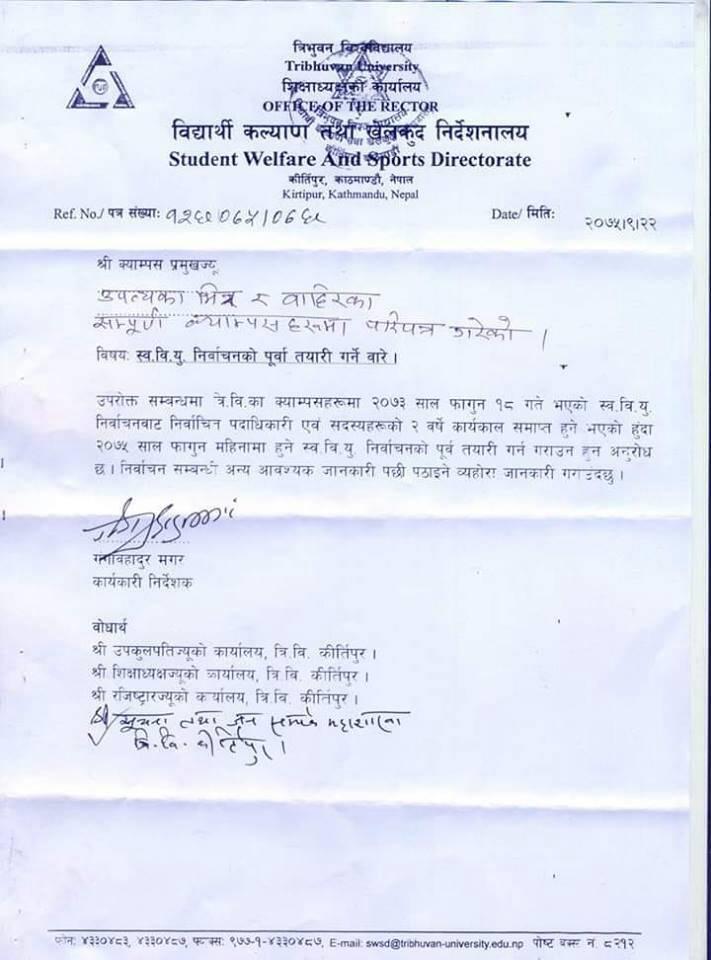 त्रिभुवन विश्वविद्यालय
Tribhuvan University
शिक्षाध्यक्षको कार्यालय
OFFICE OF THE RECTOR
विद्यार्थी कल्याण तथा खेलकुद निर्देशनालय
Student Welfare And Sports Directorate
कीर्तिपुर, काठमाण्डौ, नेपाल
Kirtipur, Kathmandu, Nepal
Ref. No./ पत्र संख्याः
Date/ मितिः २०७५।९।२२
श्री क्याम्पस प्रमुखज्यू
उपत्यका भित्र र वाहिरका
सम्पूर्ण क्याम्पसहरुमा परिपत्र गरेको ।
विषयः स्व.वि.यु. निर्वाचनको पूर्वा तयारी गर्ने वारे ।
उपरोक्त सम्वन्धमा त्रे.वि.का क्याम्पसहरूमा २०७३ साल फागुन १८ गते भएको स्व.वि.यु.
निर्वाचनबाट निर्वाचित पदाधिकारी एवं सदस्यहरूको २ वर्षे कार्यकाल समाप्त हुने भएको हुंदा
२०७५ साल फागुन महिनामा हुने स्व.वि.यु. निर्वाचनको पूर्व तयारी गर्न गराउन हुन अनुरोध
छ । निर्वाचन सम्बन्धी अन्य आवश्यक जानकारी पछी पठाइने व्यहोरा जानकारी गराउदछु ।
गंगाबहादुर मगर
कार्यकारी निर्देशक
वोधार्थ
श्री उपकुलपतिज्यूको कार्यालय, त्रि.वि. कीर्तिपुर ।
श्री शिक्षाध्यक्षज्यूको कार्यालय, त्रि.वि. कीर्तिपुर ।
श्री रजिष्ट्रारज्यूको कार्यालय, त्रि.वि. कीर्तिपुर ।
श्री सूचना तथा जन सम्पर्क महाशाखा
त्रि.वि. कीर्तिपुर ।
फोन: ४३३०४८३, ४३३०४८७, फ्याक्स: ९७७-१-४३३०४८७, E-mail: swsd@tribhuvan-university.edu.np पोष्ट बक्स नं. ८२१२